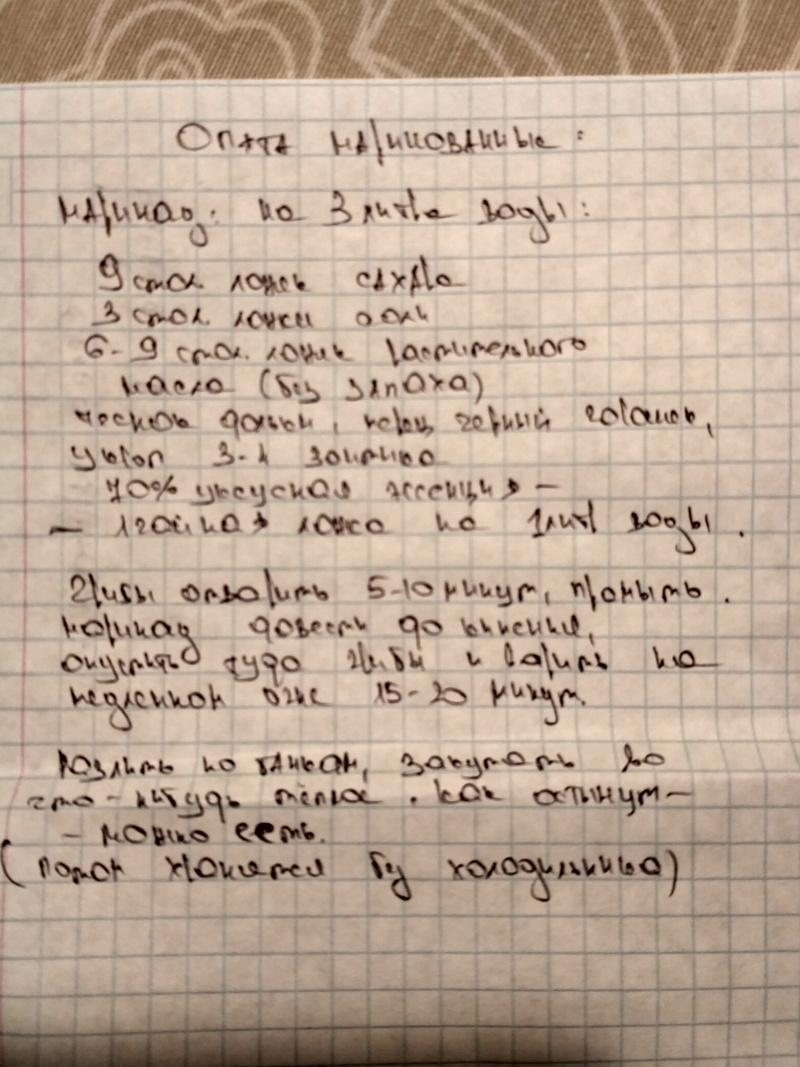 Опята маринованные:
Маринад: на 3 литра воды:
9 стол. ложек сахара
3 стол. ложки соли
6-9 стол. ложек растительного
масла (без запаха)
чеснок дольки, перец черный горошек,
укроп 3-4 зонтика
70% уксусная эссенция -
- 1 чайная ложка на 1 литр воды.
Грибы отварить 5-10 минут, промыть.
Маринад довести до кипения,
опустить туда грибы и варить на
медленном огне 15-20 минут.
Разлить по банкам, закутать во
что-нибудь теплое. Как остынут -
- можно есть.
(потом хранятся без холодильника)